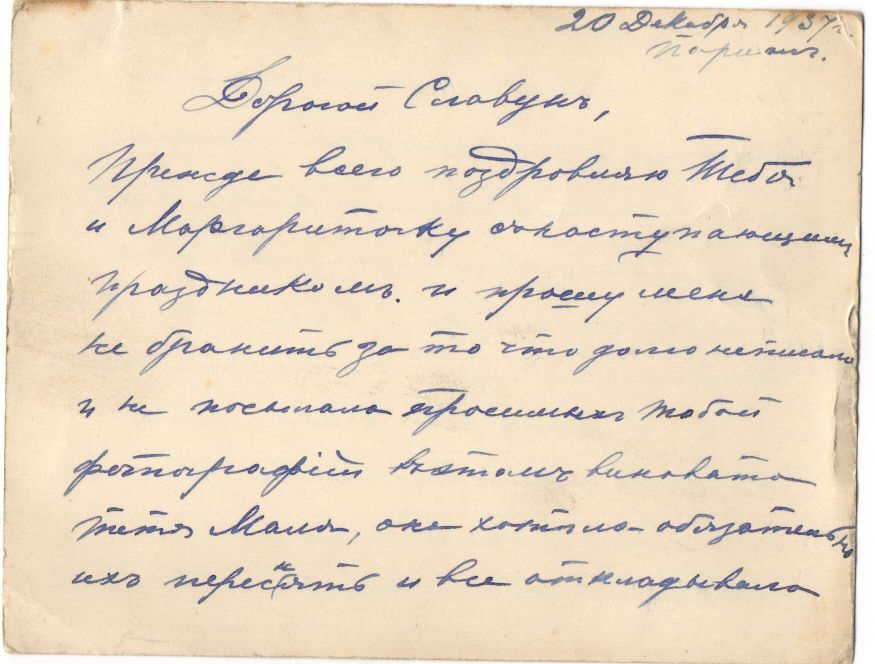 20 Декабря 1937 г.
Париж.
Дорогой Славунъ,
Прежде всего поздровляю Тебя
и Маргариточку съ наступающимъ
праздникомъ. и прошу меня
не бранить за то что долго не писала
и не посылала просимыхъ тобой
фотографiй въ этомъ виновата
тетя Маля, она хотѣла обязательно
ихъ переснять и все откладывала